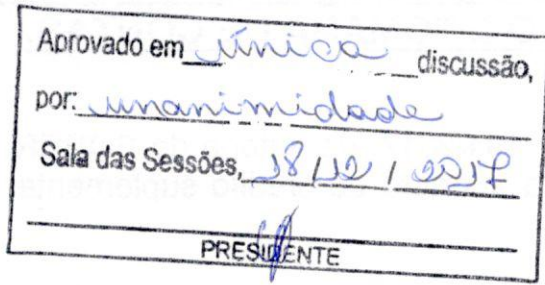 Aprovado em única discussão,
por: unanimidade
Sala das Sessões, 18/12/2017
PRESIDENTE